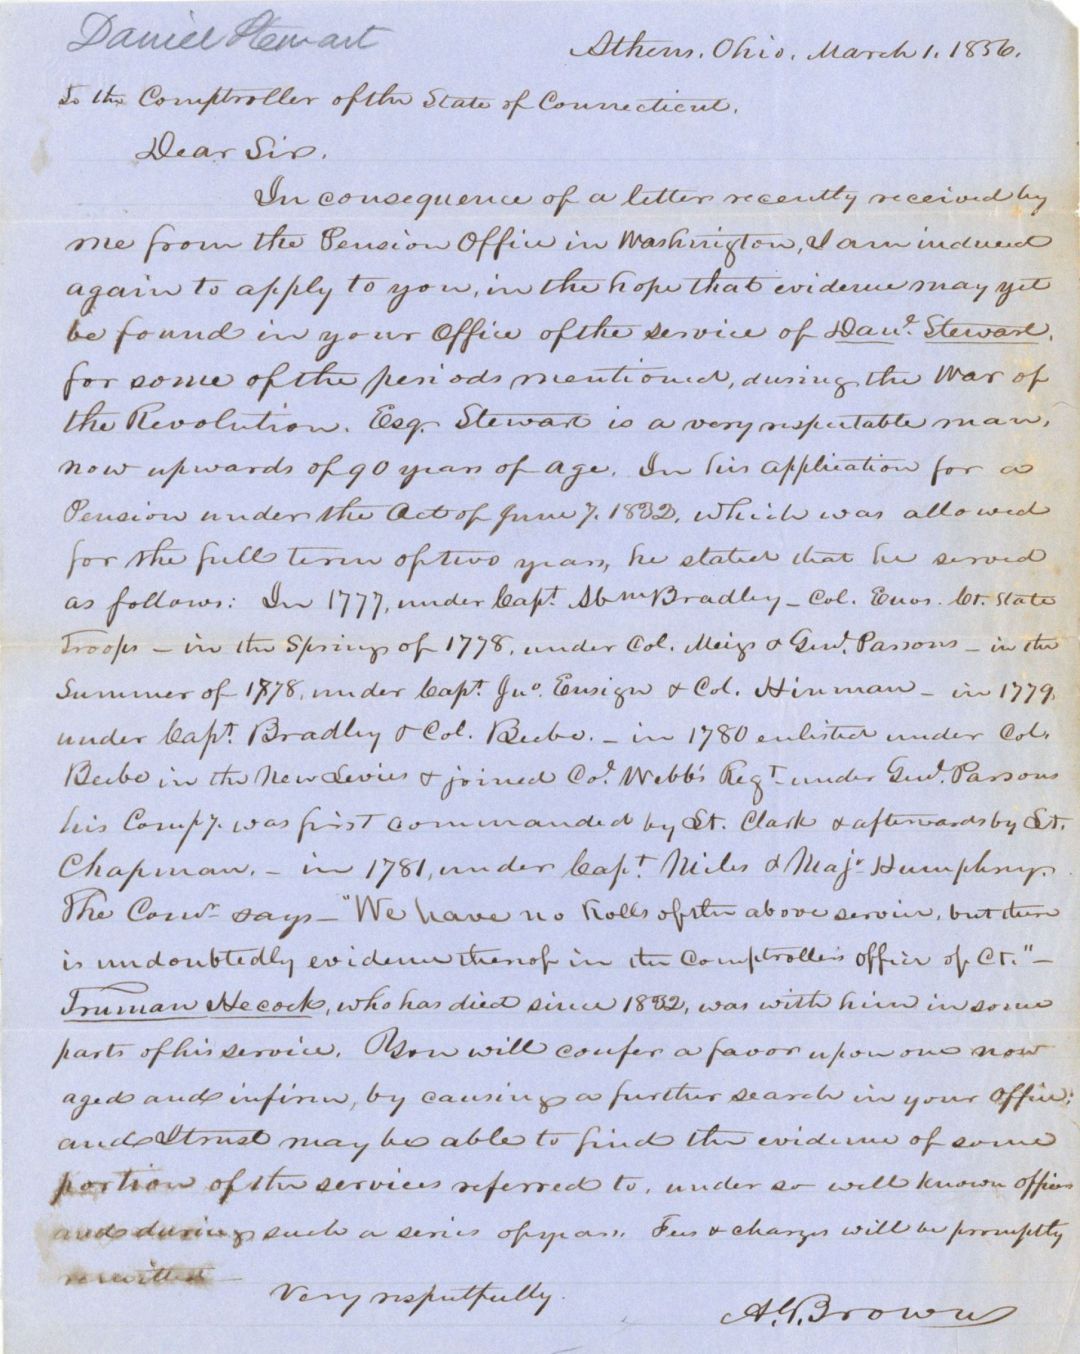 Daniel Stewart
Athens, Ohio, March 1, 1856.
To the Comptroller of the State of Connecticut.
Dear Sir.
In consequence of a letter recently received by
me from the Pension Office in Washington, I am induced
again to apply to you, in the hope that evidence may yet
be found in your Office of the service of Danl. Stewart,
for some of the periods mentioned, during the War of
the Revolution. Esq. Stewart is a very respectable man,
now upwards of 90 years of age. In his application for a
Pension under the Act of June 7. 1832, which was allowed
for the full term of two years, he stated that he served
as follows: In 1777, under Capt. Abm Bradley - Col. Enos. Ct. State
Troops - in the Spring of 1778, under Col. Meigs & Genl. Parsons - in the
Summer of 1778, under Capt. Jno. Ensign & Col. Hinman - in 1779,
under Capt. Bradley & Col. Beebe. - in 1780 enlisted under Col.
Beebe in the New Levies & joined Col. Webb's Regt. under Genl. Parsons
his Compy. was first commanded by Lt. Clark & afterwards by Lt.
Chapman. - in 1781, under Capt. Niles & Majr. Humphrey.
The Comr. says - "We have no Rolls of the above service, but there
is undoubtedly evidence thereof in the Comptroller's office of Ct." -
Truman Hecock, who has died since 1832, was with him in some
parts of his service. You will confer a favor upon one now
aged and infirm, by causing a further search in your office:
and I trust may be able to find the evidence of some
portion of the services referred to, under so well known officers
and during such a series of years. Fees & charges will be promptly
remitted -
Very respectfully.
A. G. Brown